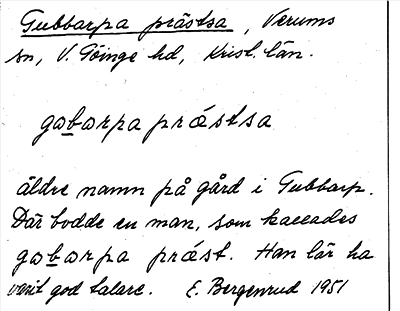 Gubbarpa prästsa, Verums
sn, V. Göinge hd, Krist. län.
gɷbɷrpa prǽstsa
äldre namn på gård i Gubbarp.
Där bodde en man, som kallades
gɷbɷrpa prǽst. Han lär ha
varit god talare. E. Bergenrud 1951